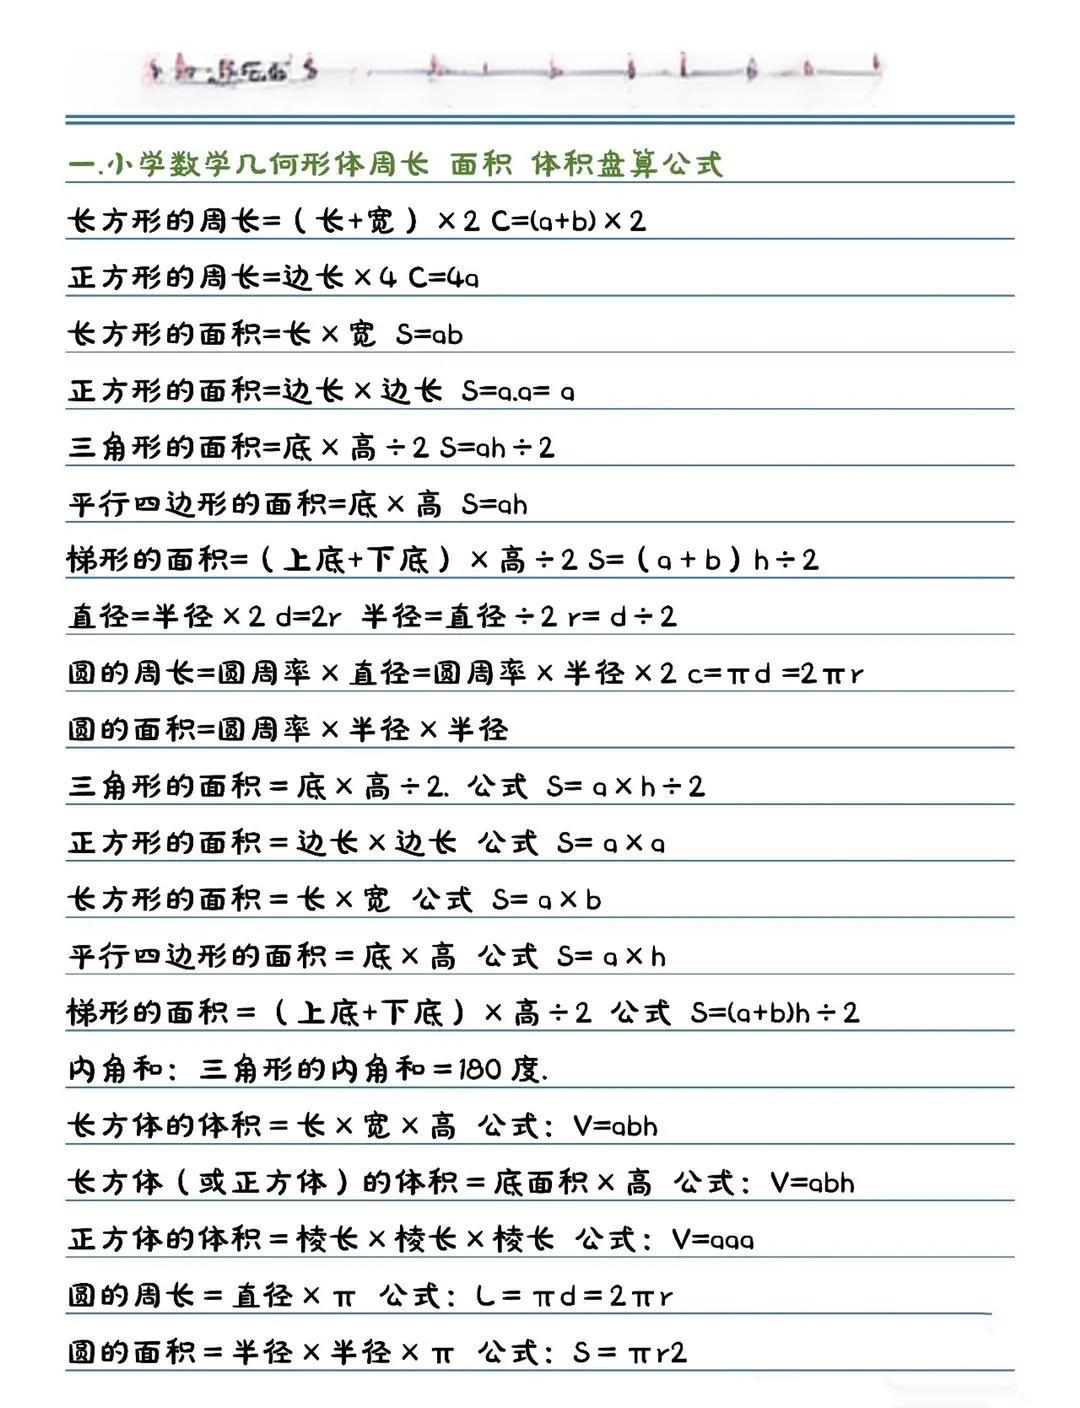 一.小学数学几何形体周长 面积 体积盘算公式
长方形的周长=(长+宽)×2 C=(a+b)×2
正方形的周长=边长×4 C=4a
长方形的面积=长×宽 S=ab
正方形的面积=边长×边长 S=a.a= a
三角形的面积=底×高÷2 S=ah÷2
平行四边形的面积=底×高 S=ah
梯形的面积=(上底+下底)×高÷2 S=(a+b)h÷2
直径=半径×2 d=2r 半径=直径÷2 r= d÷2
圆的周长=圆周率×直径=圆周率×半径×2 c=πd =2πr
圆的面积=圆周率×半径×半径
三角形的面积=底×高÷2. 公式 S= a×h÷2
正方形的面积=边长×边长 公式 S= a×a
长方形的面积=长×宽 公式 S= a×b
平行四边形的面积=底×高 公式 S= a×h
梯形的面积=(上底+下底)×高÷2 公式 S=(a+b)h÷2
内角和：三角形的内角和=180度.
长方体的体积=长×宽×高 公式：V=abh
长方体(或正方体)的体积=底面积×高 公式：V=abh
正方体的体积=棱长×棱长×棱长 公式：V=aaa
圆的周长=直径×π 公式：L=πd=2πr
圆的面积=半径×半径×π 公式：S=πr2